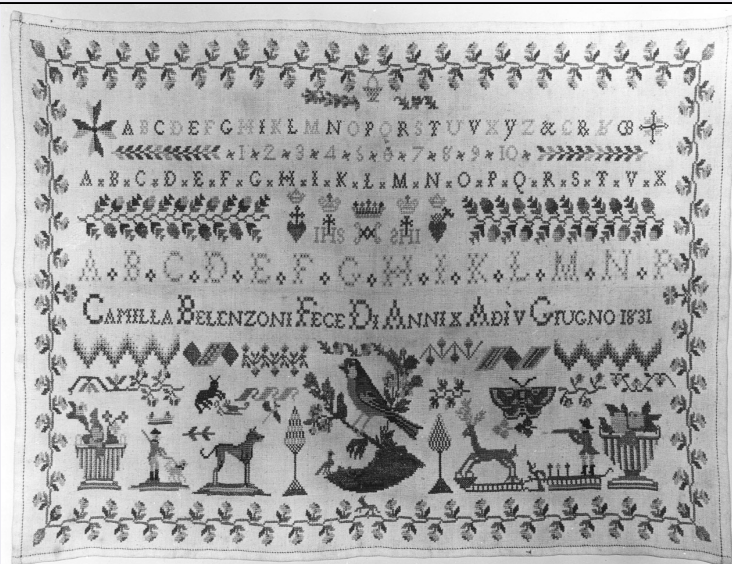 A B C D E F G H I K L M N O P Q R S T U V X Y Z & C R
1 2 3 4 5 6 7 8 9 10
A B C D E F G H I K L M N O P Q R S T V X
IHS SHI
A B C D E F G H I K L M N P
CAMILLA BELENZONI FECE DI ANNI X ADÌ V GIUGNO 1831